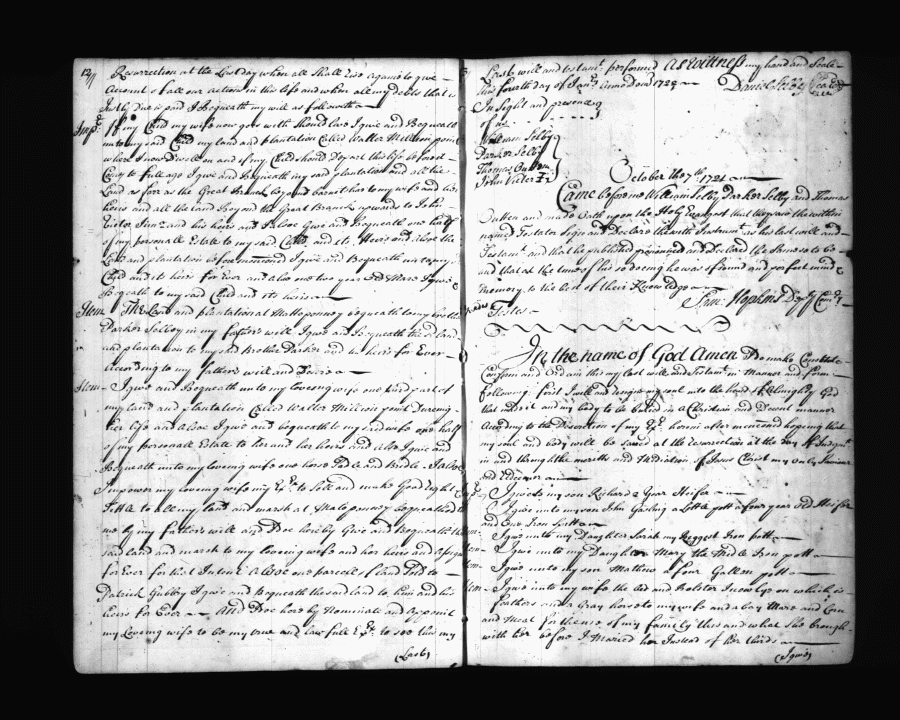 12
Resurrection at the Last day when all Shall rise again to give
Account of all our action in this life and when all my debts that is
Justly due is paid I Bequeath my will as followeth
Imps If my Child my wife now goes with should live I give and Bequeath
unto my said Child my land and plantation Called Walter Million point
where I now dwell on and if my Child should Depart this life before it
Come to full age I give and Bequeath my said plantation and all the
Land as fare as the Great Branch beyond to my wife and her
heirs and all the Land Beyond the Great Branch upwards to John
Victor Junr and his heirs and I aloe Give and Bequeath one half
of my personall Estate to my said Child and its Heirs and aloe the
Land and plantation beforementioned I give and Bequeath unto my
Child and its heirs for Ever and aloe one two year old Mare I give
Bequeath to my said Child and its heirs
Item The Land and plantation at Mattopomoney bequeath to my brother
Parker Selbey in my father's will I give and Bequeath the sd land
and plantation to my said Brother Parker and his heirs for Ever
According to my father's will and Desire
Item I give and Bequeath unto my loveing wife one third part of
my land and plantation Called Walter Million point Dureing
her life and aloe I give and bequeath to my said wife one half
of my personall Estate to her and her heirs and also I give and
Bequeath unto my loveing wife one horse Sadle and Bridle I aloe
Impower my loveing wife my Exr to Sell and make Good right
Title to all my land and marsh at Matopomoney bequeathed to
me by my father's will and I Doe hereby Give and Bequeath the
said land and marsh to my loveing wife and her heirs and assigns
for Ever for that Intent Aloe one parcell of land Sold to
Patrick Gubby I give and Bequeath the said land to him and his
heirs for Ever And I Doe here by Nominate and Appoint
my Loveing wife to be my true and lawfull Exr to see this my
(Last)
Last will and testamt performed As witness my hand and Seale
this fourth day of Janry Anno Dom 1720 Daniel Selby Sealed
In Sight and presence
of us
William Selby
Parker Selby
Thomas Outten
John Victor Jr
October the 7th 1721
Came before me William Selby Parker Selby and Thomas
Outten and made Oath upon the Holy Evangest that they saw the within
named Testator Sign and Declare the with Instrumt as his last will and
Testamt and that he published pronounced and Declared the Same so to be
and that at the time of his so doeing he was of sound and perfect mind
& Memory to the best of their Knowledge
Saml Hopkins Depty Comry
Testes
In the name of God Amen I Do make Constitute
Confirm and Ordain this my last will and Testamt in Manner and form
following first I will and resigne my soul into the hand of Almighty God
that made it and my body to be buried in a Christian and Decent manner
According to the Discretion of my Exr herein after mencioned hopeing that
my soul and body will be saved at the resurrection at the Day of Judgmt
in and through the meritts and Mediation of Jesus Christ my only Saviour
and Redeemer
I give to my son Richard 2 year Heifer
I give unto my son John Gosling a Little pott a four year old Heifer
and One Iron Spitt
Item I give unto my Daughter Sarah my Biggest Iron pott
Item I give unto my Daughter Mary the Midle Iron pott
Item I give unto my son Mathew a four Gallon pott
Item I give unto my wife the Bed and Bolster I now lye on which is
feathers and a Gray horse to my wife and a bay Mare and Corn
and Meat for the use of my family this and what She brought
with her before I Maried her Instead of her thirds
(I give)